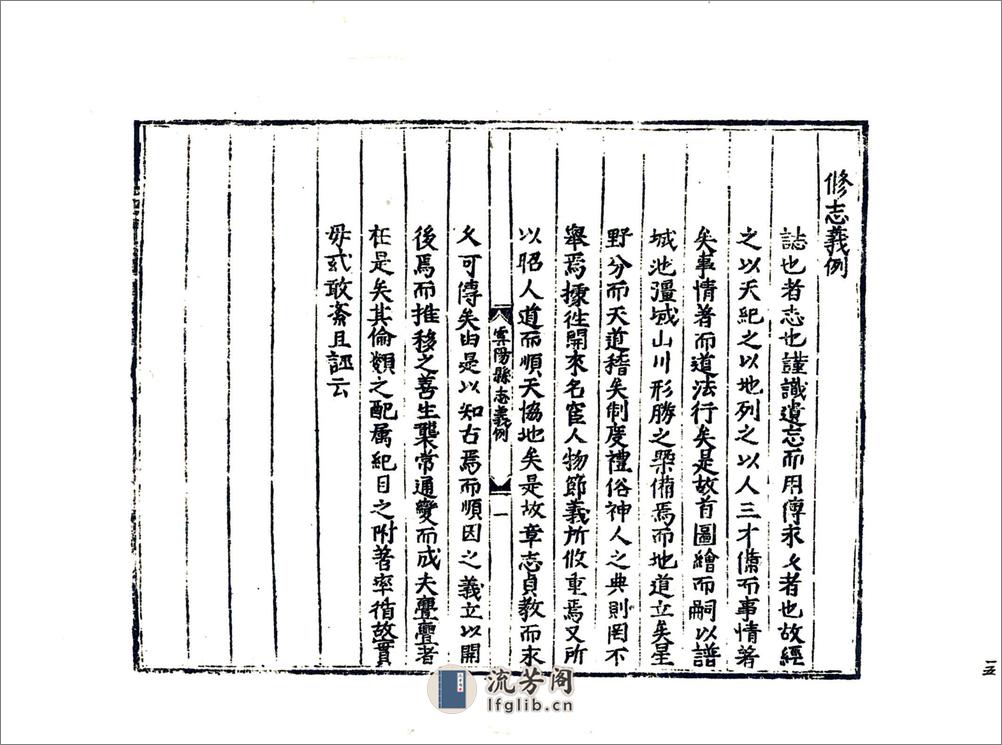 修志義例
誌也者志也謹識遺忘而用傳永久者也故經
之以天紀之以地列之以人三才俻而事情著
矣事情著而道法行矣是故首圖繪而嗣以譜
城池彊域山川形勝之槩備焉而地道立矣星
野分而天道稽矣制度禮俗神人之典則罔不
舉焉據徃開來名宦人物節義所攸重焉又所
以昭人道而順天協地矣是故章志貞教而永
久可傳矣由是以知古焉而順因之義立以開
後焉而推移之善生襲常通變而成夫亹亹者
在是矣其倫類之配属紀目之附著率循故實
毋或敢紊且誣云
雲陽縣志義例
一
一五
流芳阁
lfglib.cn